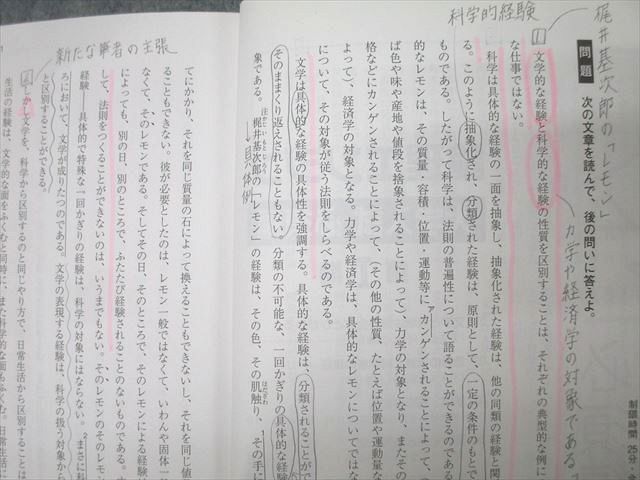 梶井基次郎の「レモン」
科学的経験
力学や経済学の対象である
制限時間 25分
問題 次の文章を読んで、後の問いに答えよ。
1 文学的な経験と科学的な経験の性質を区別することは、それぞれの典型的な例に
な仕事ではない。
科学は具体的な経験の一面を抽象し、抽象化された経験は、他の同類の経験と関
る。このように抽象化され、分類された経験は、原則として、一定の条件のもとで
ものである。したがって科学は、法則の普遍性について語ることができるのである
的なレモンは、その質量・容積・位置・運動等にカンゲンされることによって、つ
ば色や味や産地や値段を捨象されることによって)、力学の対象となり、またその
格などにカンゲンされることによって、(その他の性質、たとえば位置や運動量な
よって)、経済学の対象となる。力学や経済学は、具体的なレモンについてではな
について、その対象が従う法則をしらべるのである。
文学は具体的な経験の具体性を強調する。具体的な経験は、分類されることがで
そのままくり返えされることもない。分類の不可能な、一回かぎりの具体的な経験
象である。梶井基次郎の「レモン」の経験は、その色、その肌触り、その手に
具体例
てにかかり、それを同じ質量の石によって換えることもできないし、それを同じ値
ることもできない。彼が必要としたのは、レモン一般ではなくて、いわんや固体一
なくて、そのレモンである。そしてその日、そのところで、そのレモンによる経験
によっても、別の日、別のところで、ふたたび経験されることのないものである。
して、法則をつくることができないのは、いうまでもない。そのレモンのそのレモ
経験―具体的で特殊な一回かぎりの経験は、科学の対象にはならない。まさに科
ろにおいて、文学が成りたつのである。文学の表現する経験は、科学の扱う対象から
と区別することができる。
新たな筆者の主張
2 しかし文学を、科学から区別するのと同じやり方で、日常生活から区別することは
生活の経験は、文学的な面をふくむと同時に、また科学的な面もふくむ。日常生活に